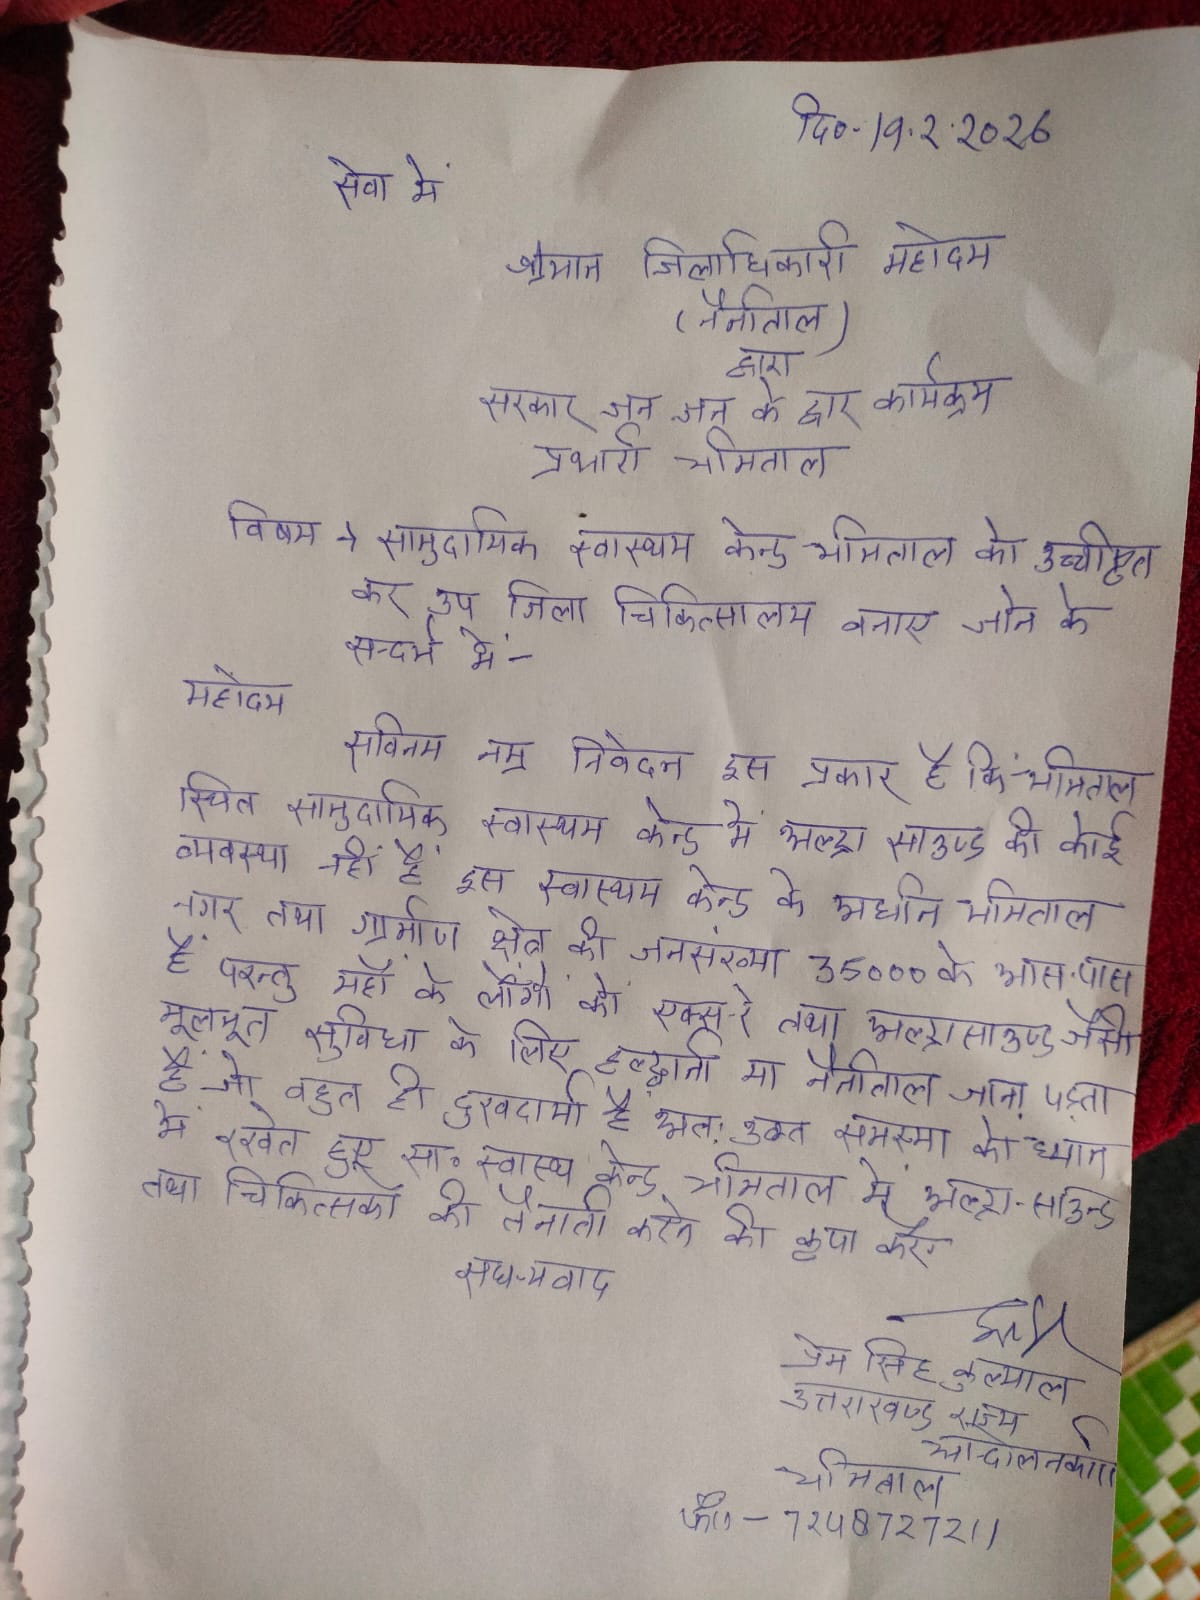 दि०-19.2.2026
सेवा में
श्रीमान जिलाधिकारी महोदय
(नैनीताल)
द्वारा
सरकार जन जन के द्वार कार्यक्रम
प्रभारी भीमताल
विषय → सामुदायिक स्वास्थ्य केन्द्र भीमताल को उच्चीकृत
कर उप जिला चिकित्सालय बनाए जाने के
सन्दर्भ में -
महोदय
सविनय नम्र निवेदन इस प्रकार है कि भीमताल
स्थित सामुदायिक स्वास्थ्य केन्द्र में अल्ट्रा साउण्ड की कोई
व्यवस्था नहीं हैं इस स्वास्थ्य केन्द्र के अधीन भीमताल
नगर तथा ग्रामीण क्षेत्र की जनसंख्या 35000 के आस-पास
हैं परन्तु यहाँ के लोगों को एक्स-रे तथा अल्ट्रासाउण्ड जैसी
मूलभूत सुविधा के लिए हल्द्वानी या नैनीताल जाना पड़ता
हैं जो बहुत ही दुखदायी हैं अतः उक्त समस्या को ध्यान
में रखते हुए सा० स्वास्थ्य केन्द्र भीमताल में अल्ट्रा-साउन्ड
तथा चिकित्सकों की तैनाती करने की कृपा करें
सधन्यवाद
प्रेम सिंह कुल्याल
उत्तराखण्ड राज्य
आन्दोलनकारी
भीमताल
फो० - 7248727211